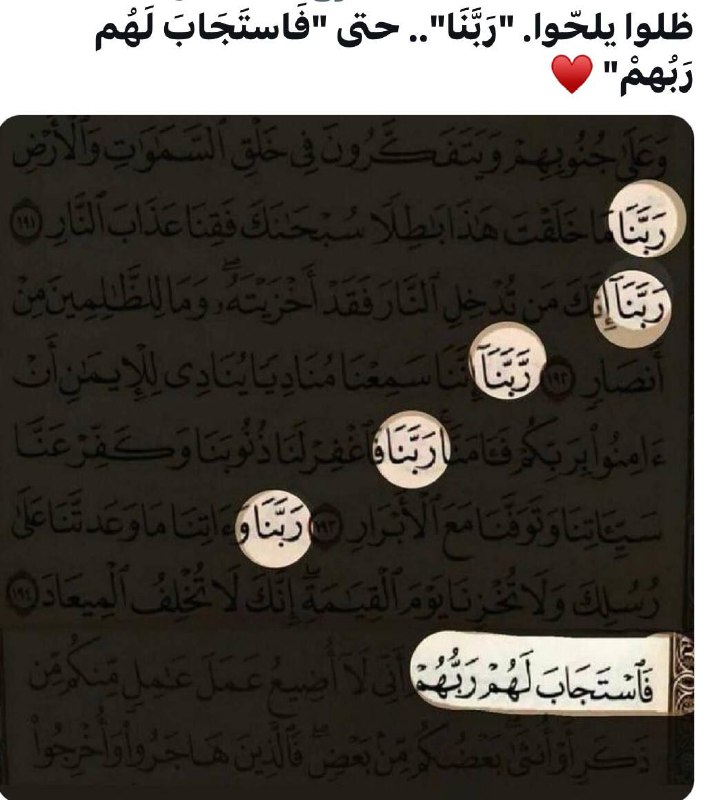 ظلوا يلحّوا. "رَبَّنَا".. حتى "فَاستَجَابَ لَهُم
رَبُهمْ" ♥️
وَعَلَىٰ جُنُوبِهِمْ وَيَتَفَكَّرُونَ فِى خَلْقِ ٱلسَّمَٰوَٰتِ وَٱلْأَرْضِ
رَبَّنَا مَا خَلَقْتَ هَٰذَا بَٰطِلًا سُبْحَٰنَكَ فَقِنَا عَذَابَ ٱلنَّارِ ١٩١
رَبَّنَآ إِنَّكَ مَن تُدْخِلِ ٱلنَّارَ فَقَدْ أَخْزَيْتَهُۥ ۖ وَمَا لِلظَّٰلِمِينَ مِنْ
أَنصَارٍ ١٩٢ رَّبَّنَآ إِنَّنَا سَمِعْنَا مُنَادِيًا يُنَادِى لِلْإِيمَٰنِ أَنْ
ءَامِنُوا۟ بِرَبِّكُمْ فَـَٔامَنَّا رَبَّنَا فَٱغْفِرْ لَنَا ذُنُوبَنَا وَكَفِّرْ عَنَّا
سَيِّـَٔاتِنَا وَتَوَفَّنَا مَعَ ٱلْأَبْرَارِ ١٩٣ رَبَّنَا وَءَاتِنَا مَا وَعَدتَّنَا عَلَىٰ
رُسُلِكَ وَلَا تُخْزِنَا يَوْمَ ٱلْقِيَٰمَةِ ۗ إِنَّكَ لَا تُخْلِفُ ٱلْمِيعَادَ ١٩٤
فَٱسْتَجَابَ لَهُمْ رَبُّهُمْ أَنِّى لَآ أُضِيعُ عَمَلَ عَٰمِلٍ مِّنكُم مِّن
ذَكَرٍ أَوْ أُنثَىٰ ۖ بَعْضُكُم مِّنۢ بَعْضٍ ۖ فَٱلَّذِينَ هَاجَرُوا۟ وَأُخْرِجُوا۟